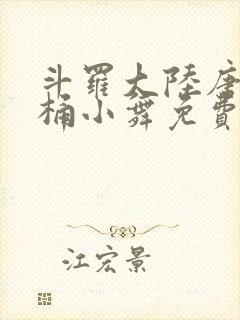 斗羅大陸唐
桶小舞免費
江宏景